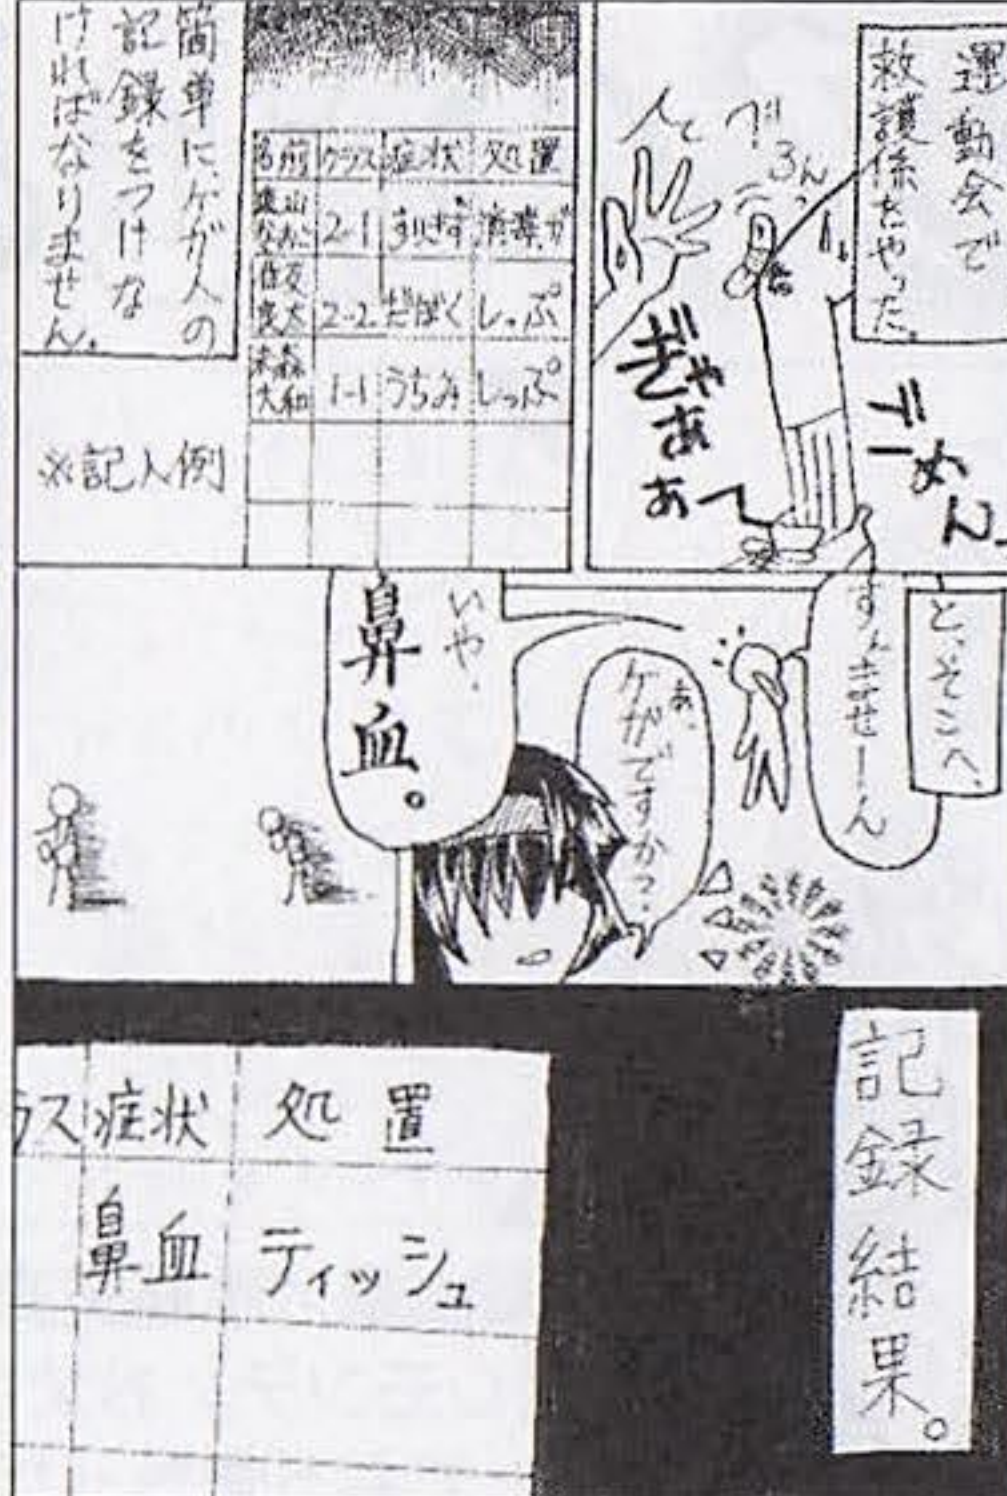 運動会で
救護係をやった。
ぎゃ
ああー
簡単に、ケガ人の
記録をつけな
ければなりません。
名前 クラス 症状 処置
2-1 すりきず
2-2 だぼく しっぷ
大和 1-1 うちみ しっぷ
※記入例
と、そこへ、
すみませーん
あ、
ケガですか？
いや、
鼻血。
記録結果。
ラス 症状 処置
鼻血 ティッシュ